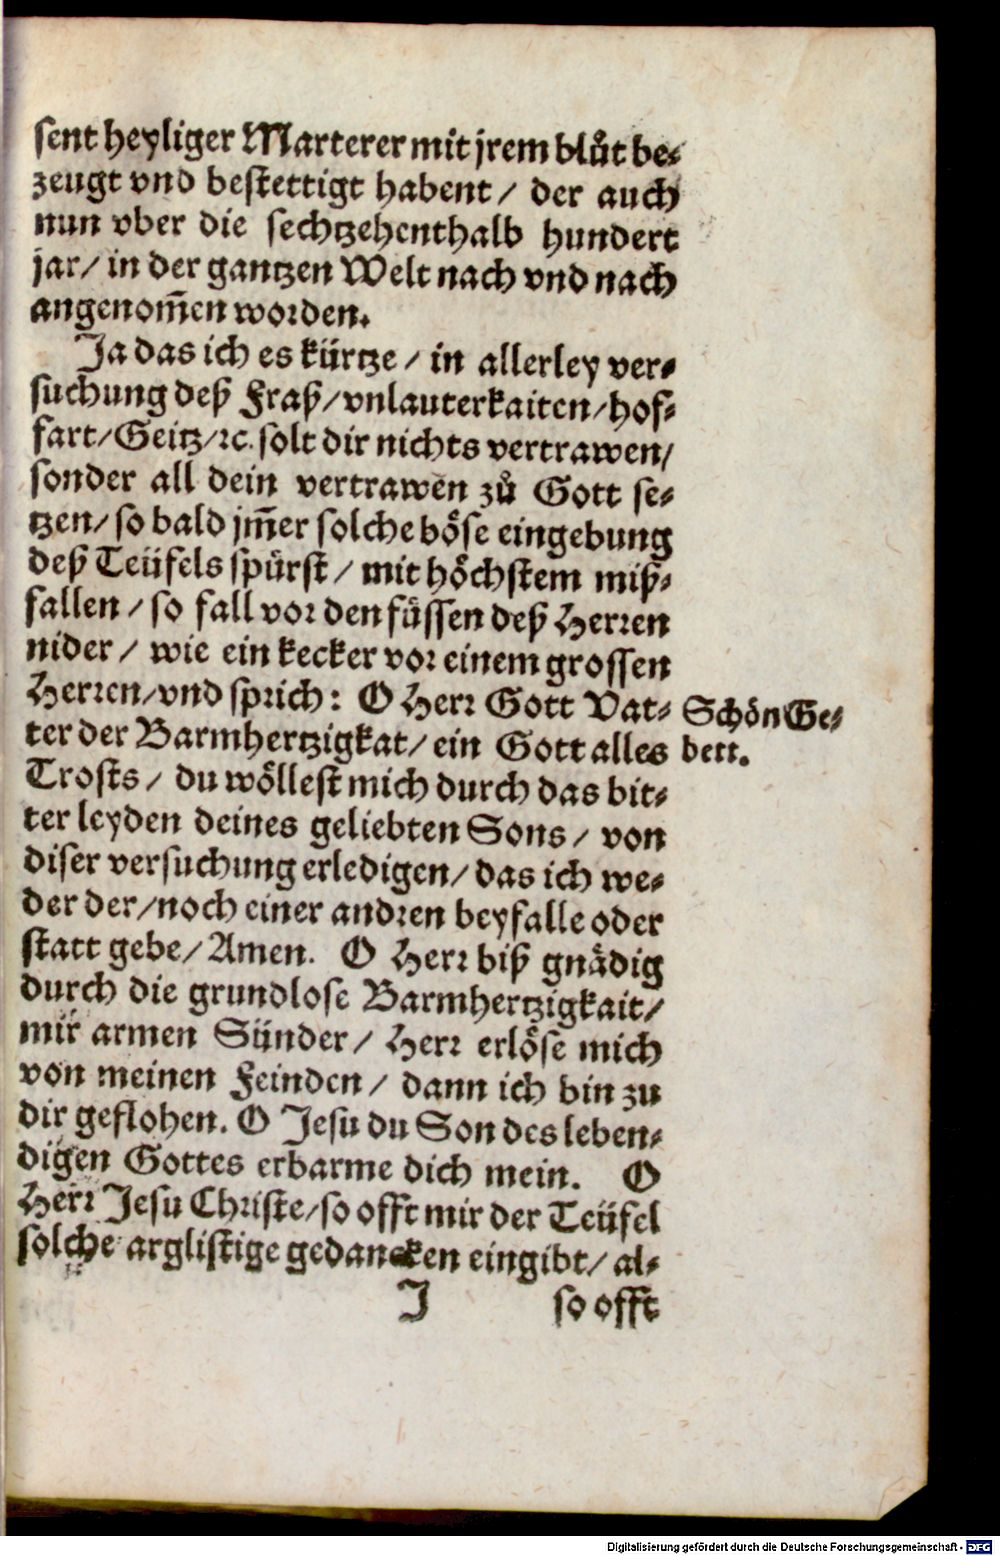 sent heyliger Marterer mit jrem blůt be⸗
zeugt vnd bestettigt habent / der auch
nun vber die sechtzehenthalb hundert
jar/ in der gantzen Welt nach vnd nach
angenom̃en worden.
Ja das ich es kürtze / in allerley ver⸗
suchung deß Fraß/vnlauterkaiten/hof⸗
fart/Geitz/ꝛc. solt dir nichts vertrawen/
sonder all dein vertrawen zů Gott se⸗
tzen/ so bald jm̃er solche böse eingebung
deß Teüfels spürst / mit höchstem miß⸗
fallen / so fall vor den füssen deß Herren
nider / wie ein kecker vor einem grossen
Herren/vnd sprich: O Herr Gott Vat⸗
ter der Barmhertzigkat/ ein Gott alles
Trosts / du wöllest mich durch das bit⸗
ter leyden deines geliebten Sons / von
diser versuchung erledigen/ das ich we⸗
der der/noch einer andren beyfalle oder
statt gebe/ Amen. O Herr biß gnädig
durch die grundlose Barmhertzigkait/
mir armen Sünder / Herr erlöse mich
von meinen Feinden / dann ich bin zu
dir geflohen. O Jesu du Son des leben⸗
digen Gottes erbarme dich mein. O
Herr Jesu Christe/so offt mir der Teüfel
solche arglistige gedancken eingibt/ al⸗
J so offt
Schön Ge⸗
bett.
Digitalisierung gefördert durch die Deutsche Forschungsgemeinschaft - DFG